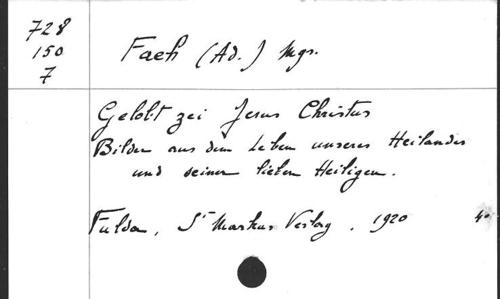 728
150
7
Faeh (Ad.) Mgr.
Gelobt zei Jesus Christus
Bilder aus dem Leben unseres Heilandes
und seiner lieben Heiligen.
Fulda, St Markus Verlag . 1920 4°